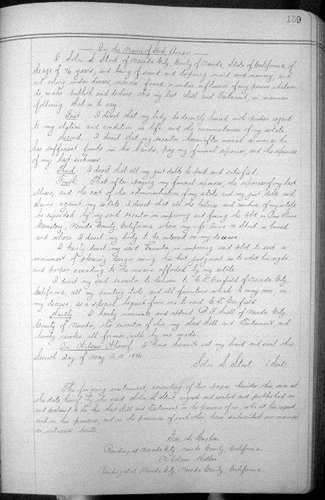 159
In the Name of God, Amen.
I, John S. Stout of Nevada City, County of Nevada, State of California, of
the age of 76 years, and being of sound and disposing mind and memory, and
not acting under duress, menace, fraud or undue influence of any person whatever,
do make, publish and declare this my last Will and Testament, in manner
following, that is to say:
First. I direct that my body be decently buried with proper regard
to my station and condition in life and the circumstances of my estate.
Second. I direct that my executor hereinafter named as soon as he
has sufficient funds in his hands, pay my funeral expenses, and the expenses
of my last sickness.
Third. I direct that all my just debts be paid and satisfied.
That after paying my funeral expenses, the expenses of my last
illness, and the cost of the administration of my estate and my just debts and
claims against my estate, I direct that all the balance and residue of my estate
be expended by my said executor in improving the plot in
Cemetery, Nevada County, California, where my wife is buried
and where I direct my body to be interred on my decease.
I direct my said executor in improving said plot to
monument of pleasing design using his best judgment as to what is right
and proper according to the means afforded by my estate.
I direct my said executor to deliver to Canfield of Nevada City,
California, all my and all furniture which I may own at
my decease, as a special bequest from me to said Canfield.
Lastly. I hereby nominate and appoint of Nevada City,
County of Nevada, the executor of this my last Will and Testament, and
hereby revoke all former wills by me made.
In Witness Whereof, I have hereunto set my hand and seal this
day of May A.D. 1916
John S. Stout (Seal)
The foregoing instrument, consisting of two pages besides this, was at
the date hereof by the said John S. Stout signed and sealed and published as
and declared to be his last Will and Testament in the presence of us, who at his request
and in his presence, and in the presence of each other, have subscribed our names
as witnesses thereto.
Geo. S.
Residing at Nevada City, Nevada County, California.
Residing at Nevada City, Nevada County, California.